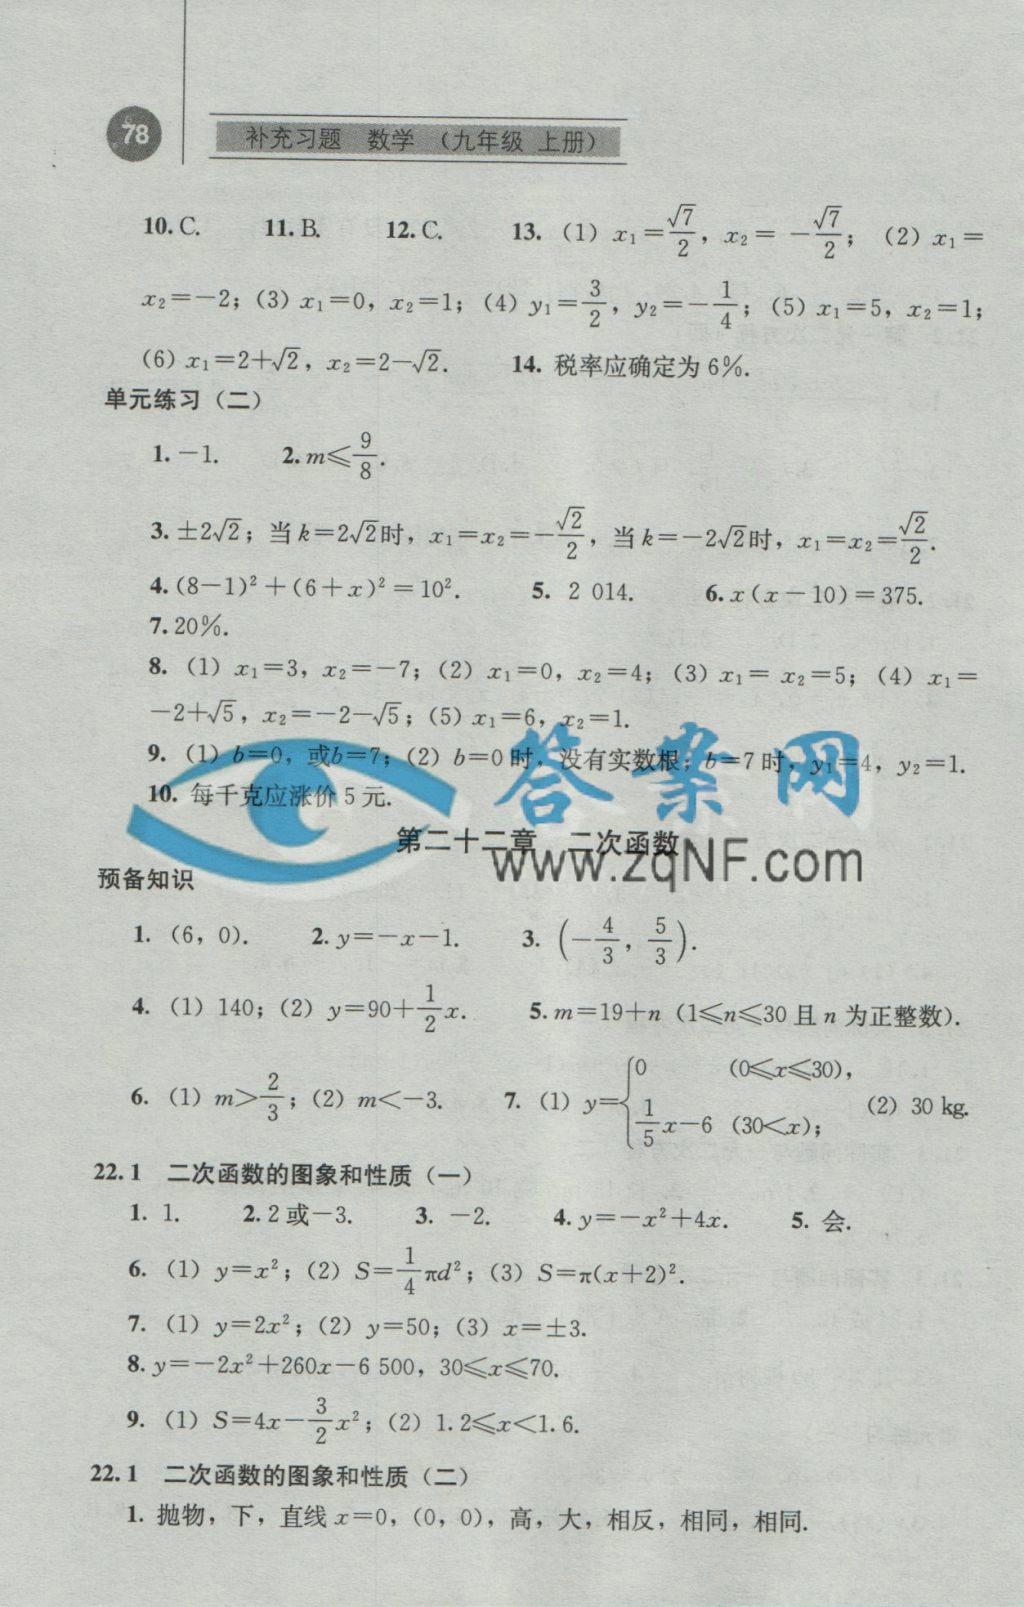 78
补充习题 数学 (九年级 上册)
10. C. 11. B. 12. C. 13. (1) x₁=√7/2, x₂=-√7/2; (2) x₁=
x₂=-2; (3) x₁=0, x₂=1; (4) y₁=3/2, y₂=-1/4; (5) x₁=5, x₂=1;
(6) x₁=2+√2, x₂=2-√2. 14. 税率应确定为 6%.
单元练习 (二)
1. -1. 2. m≤9/8.
3. ±2√2; 当 k=2√2时, x₁=x₂=-√2/2, 当 k=-2√2时, x₁=x₂=√2/2.
4. (8-1)²+(6+x)²=10². 5. 2 014. 6. x(x-10)=375.
7. 20%.
8. (1) x₁=3, x₂=-7; (2) x₁=0, x₂=4; (3) x₁= x₂=5; (4) x₁=
-2+√5, x₂=-2-√5; (5) x₁=6, x₂=1.
9. (1) b=0, 或b=7; (2) b=0时, 没有实数根; b=7时, y₁=4, y₂=1.
10. 每千克应涨价 5 元.
答案网
www.zqNF.com
第二十二章 二次函数
预备知识
1. (6, 0). 2. y=-x-1. 3. (-4/3, 5/3).
4. (1) 140; (2) y=90+1/2x. 5. m=19+n (1≤n≤30 且 n 为正整数).
6. (1) m>2/3; (2) m<-3. 7. (1) y={0 (0≤x≤30), 1/5x-6 (30<x); (2) 30 kg.
22.1 二次函数的图象和性质 (一)
1. 1. 2. 2 或-3. 3. -2. 4. y=-x²+4x. 5. 会.
6. (1) y=x²; (2) S=1/4πd²; (3) S=π(x+2)².
7. (1) y=2x²; (2) y=50; (3) x=±3.
8. y=-2x²+260x-6 500, 30≤x≤70.
9. (1) S=4x-3/2x²; (2) 1.2≤x<1.6.
22.1 二次函数的图象和性质 (二)
1. 抛物, 下, 直线 x=0, (0, 0), 高, 大, 相反, 相同, 相同.